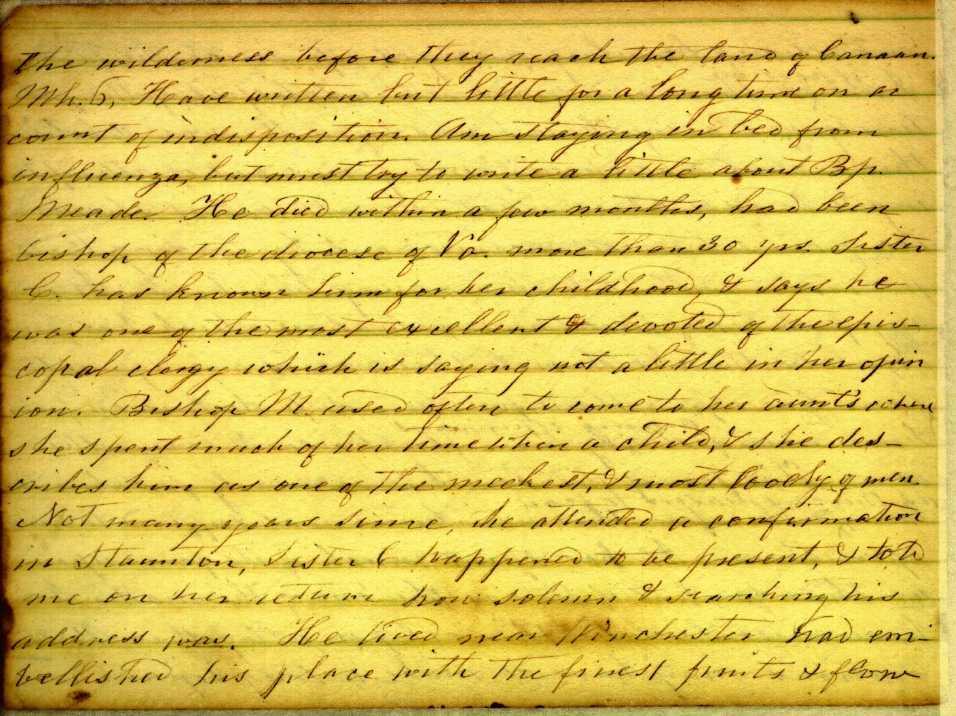 the wilderness before they reach the land of Canaan.
Mh. 6, Have written but little for a long time on ac
count of indisposition. Am staying in bed from
influenza, but must try to write a little about Bp.
Meade. He died within a few months, had been
bishop of the diocese of Va. more than 30 yrs. Sister
C. has known him for her childhood, & says he
was one of the most excellent & devoted of the epis-
copal clergy which is saying not a little in her opin
ion. Bishop M. used often to come to her aunt's where
she spent much of her time when a child, & she des-
cribes him as one of the meekest, & most lovely of men.
Not many years since, he attended a confirmation
in Staunton, Sister C happened to be present, & told
me on her return how solemn & searching his
address was. He lived near Winchester had em-
bellished his place with the finest fruits & flow